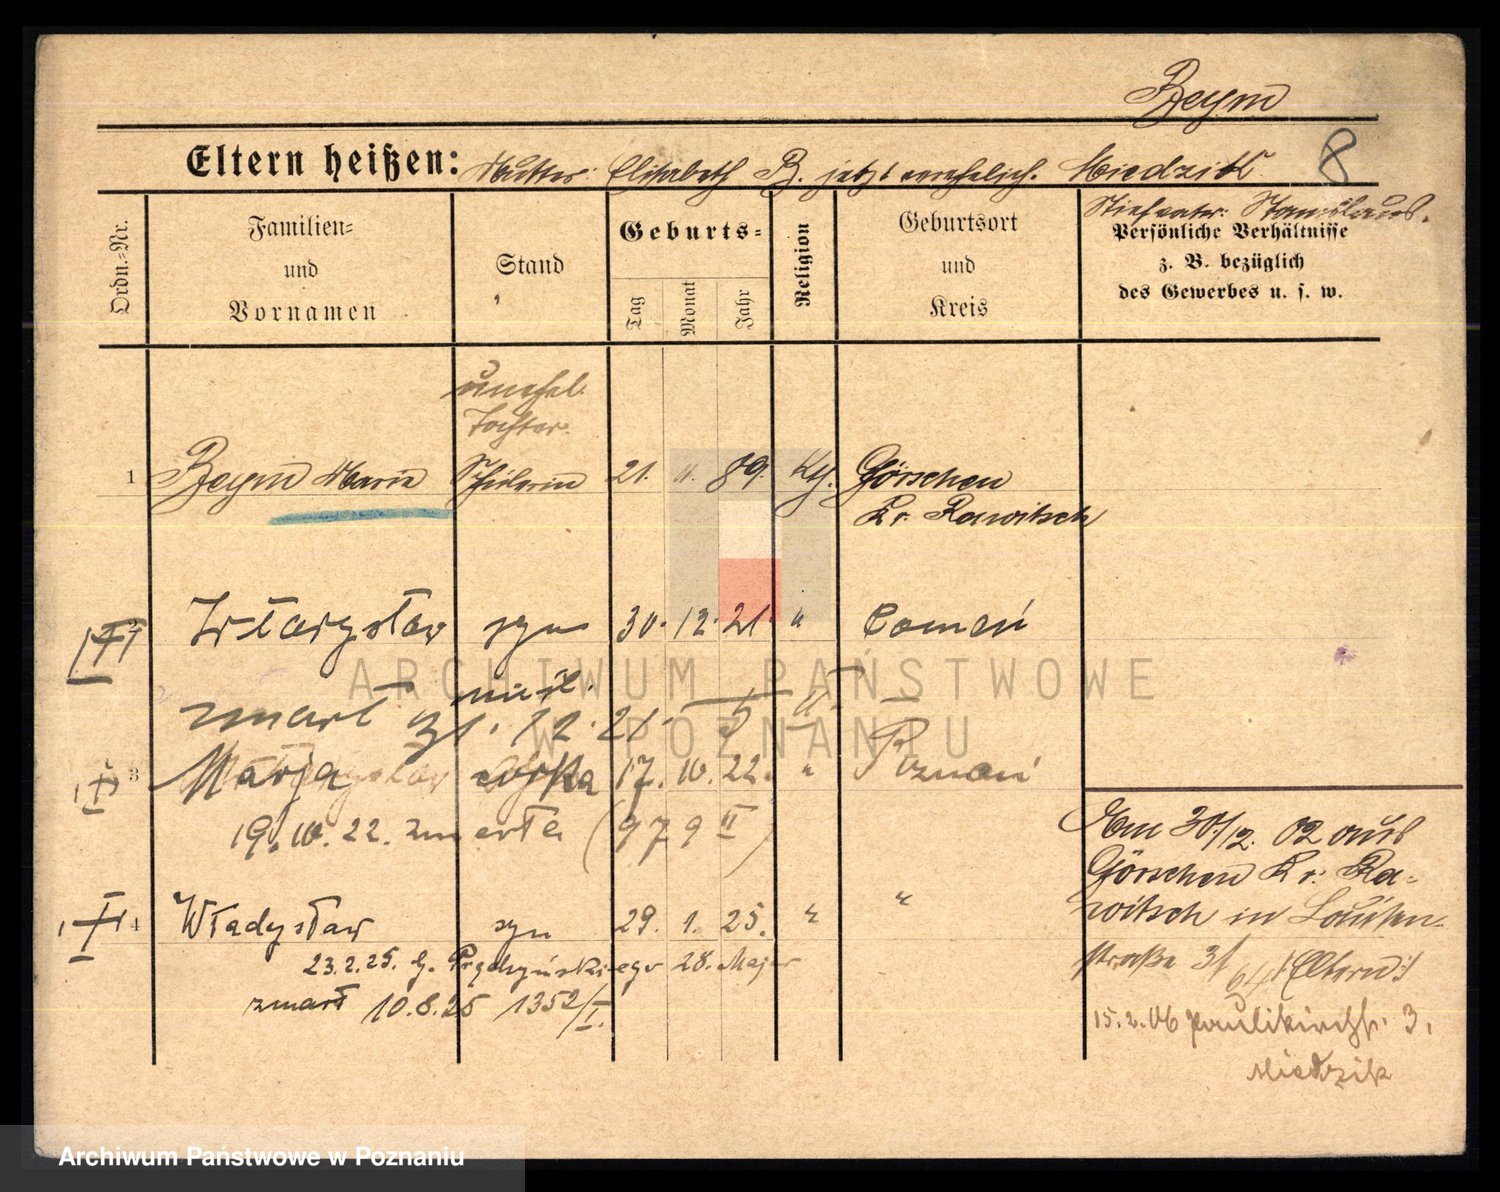 Beym
Eltern heißen: Mutter: Elisabeth B. jetzt verehelich. Miedzik 8
Stiefvater: Stanislaus.
Ordn.-Nr.
Familien-
und
Vornamen
Stand
Geburts-
Tag
Monat
Jahr
Religion
Geburtsort
und
Kreis
Persönliche Verhältnisse
z. B. bezüglich
des Gewerbes u. s. w.
unehel.
Tochter.
1 Beym Maria Schülerin 21. 11. 89. kth. Görschen
Kr. Rawitsch
2 Władysław syn 30. 12. 21 "
zmarł 31. 12. 21
3 Marja córka 17. 10. 22. " Poznań
19. 10. 22. zmarła (979 II)
4 Władysław syn 29. 1. 25. " "
23.2.25. G. 28. Maja
zmarł 10.8.25 1352/I.
Am 30./12. 02 aus
Görschen Kr. Ra-
witsch in Louisen-
straße 3 (Eltern)
15.2.06 Paulikirchstr. 3.
Miedzik
ARCHIWUM PAŃSTWOWE
W POZNANIU
Archiwum Państwowe w Poznaniu